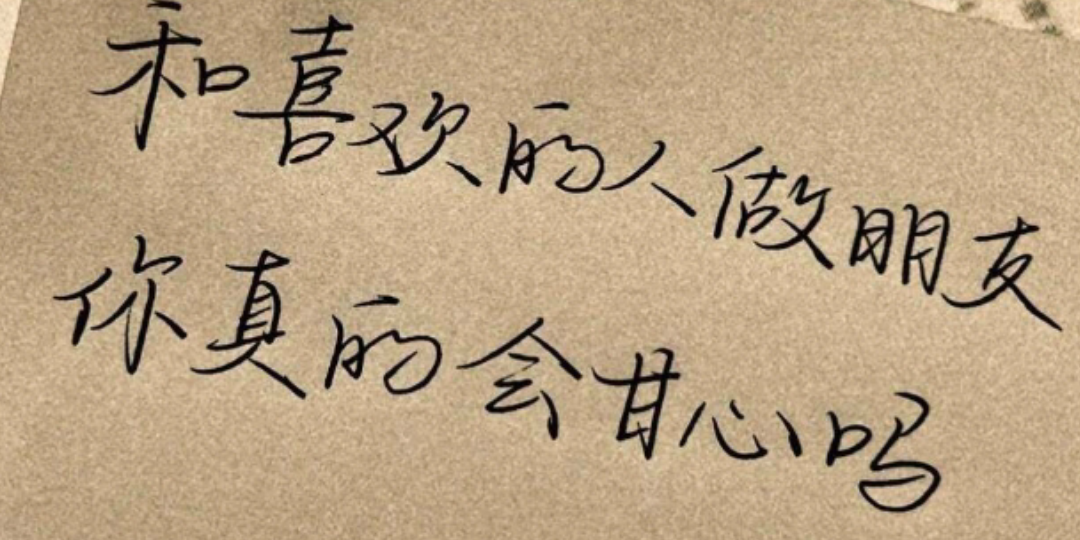 和喜欢的人做朋友
你真的会甘心吗